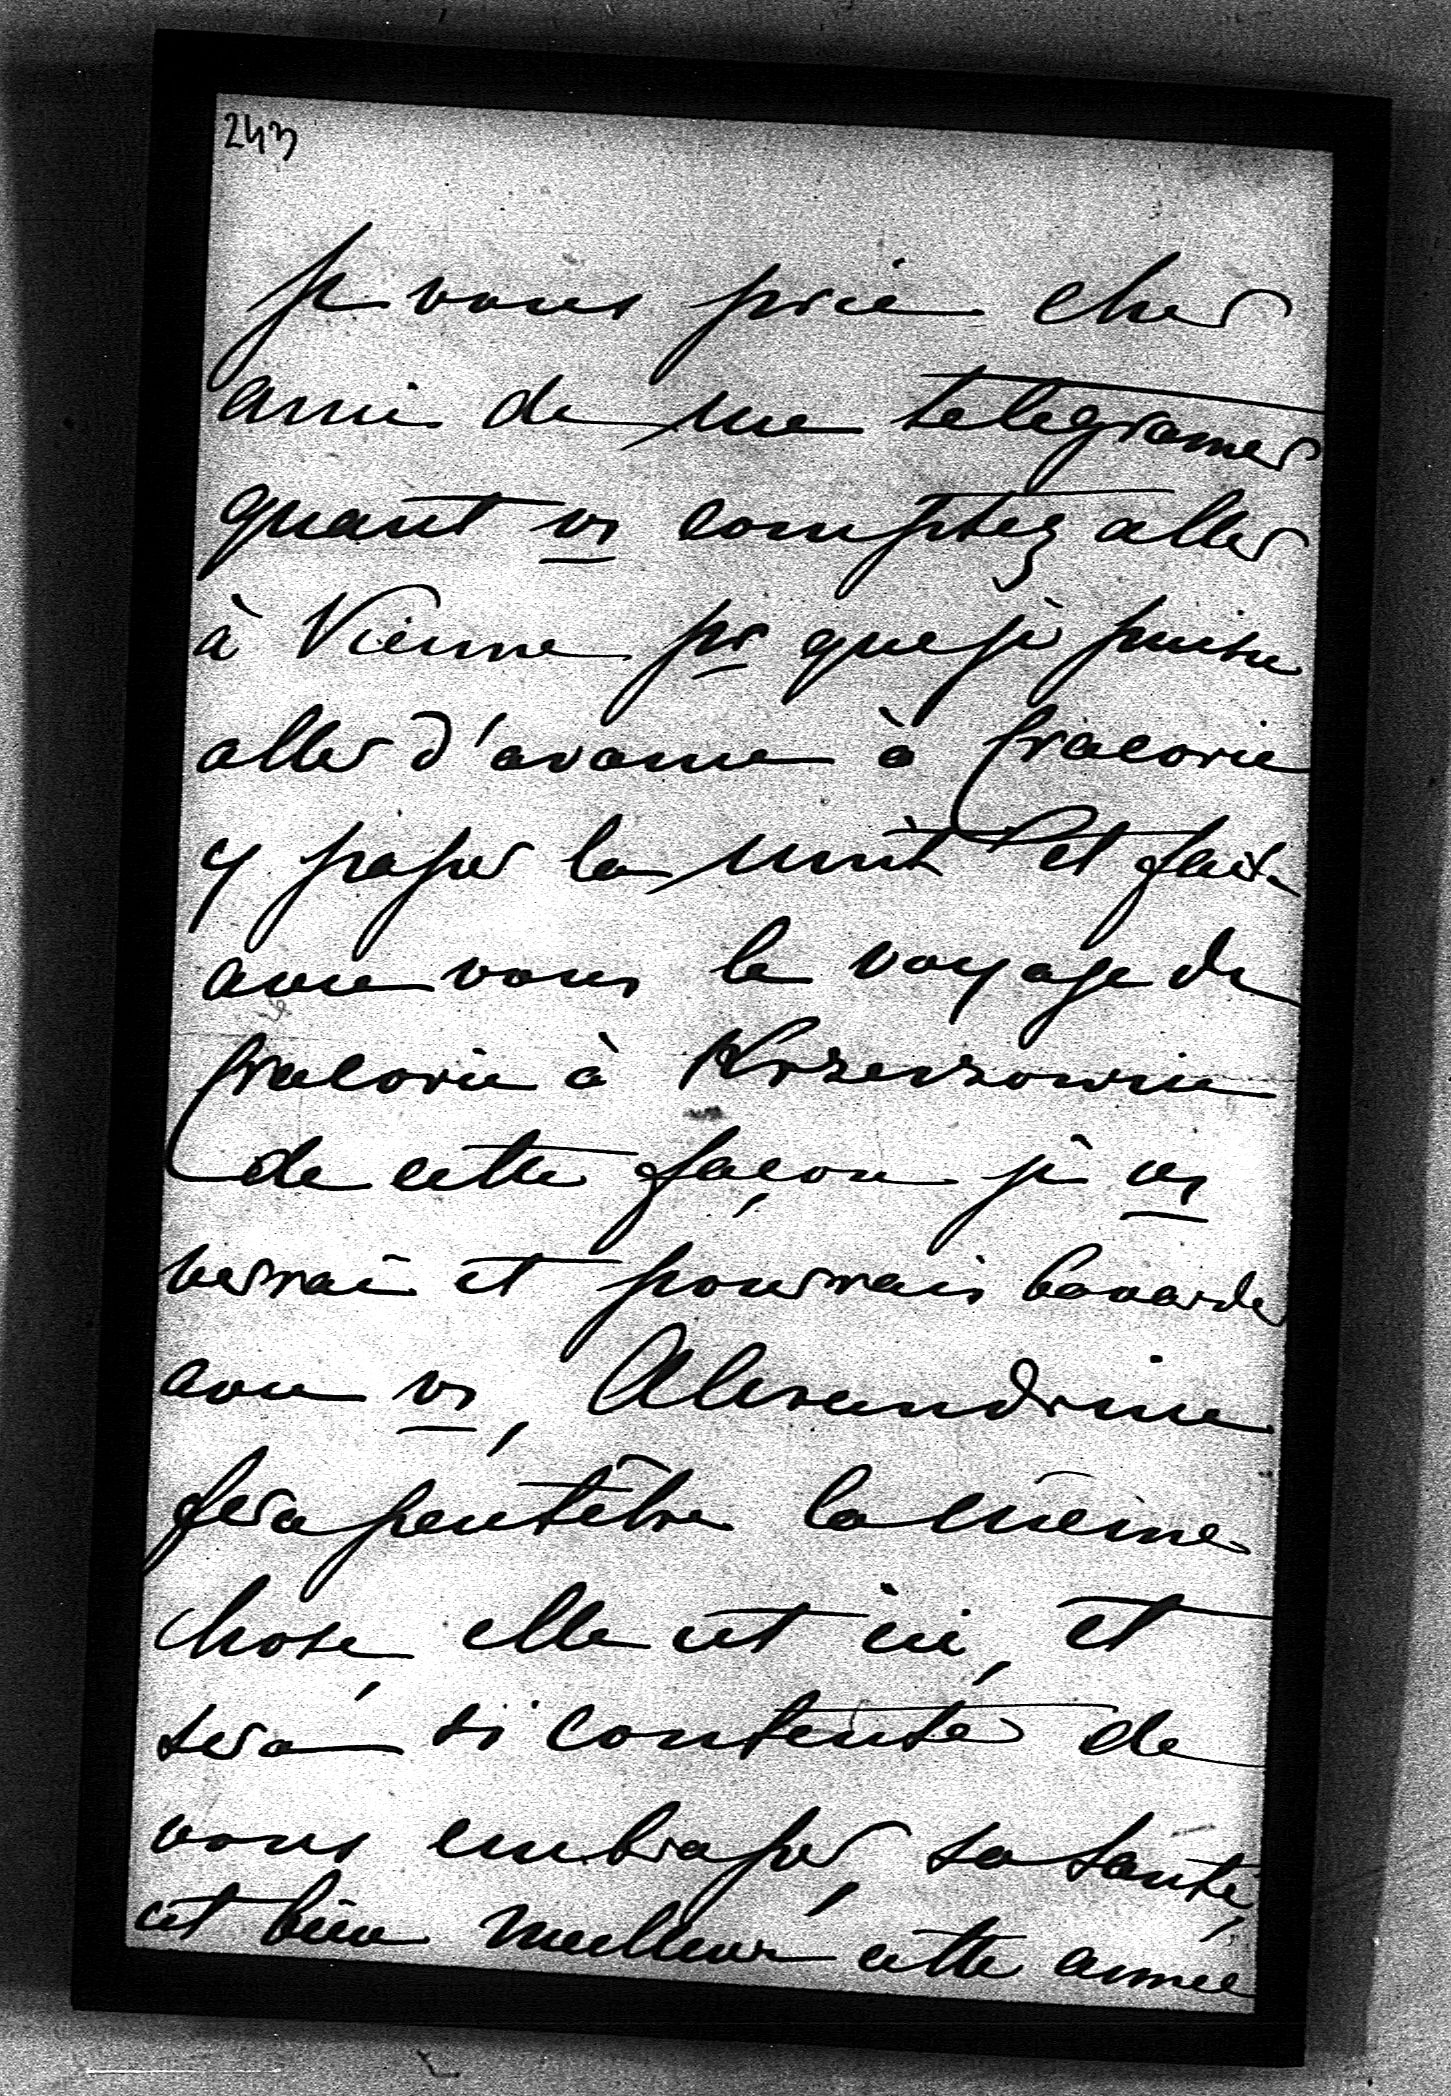 243
je vous prie cher
ami de me telegramer
quant vs comptez aller
à Vienne pr que je puisse
aller d'avance à Cracovie
y passer la nuit et faire
avec vous le voyage de
Cracovie à Krzeszowice
de cette façon je vs
verrai et pourrais bavarder
avec vs, Alexandrine
fera peutêtre la même
chose, elle est ici, et
sera si contente de
vous embrasser, sa santé,
est bien meilleure cette année